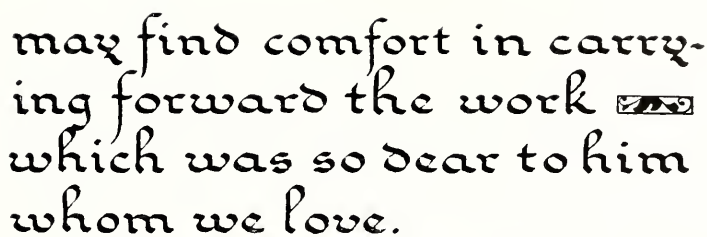 may find comfort in carry-
ing forward the work
which was so dear to him
whom we love.